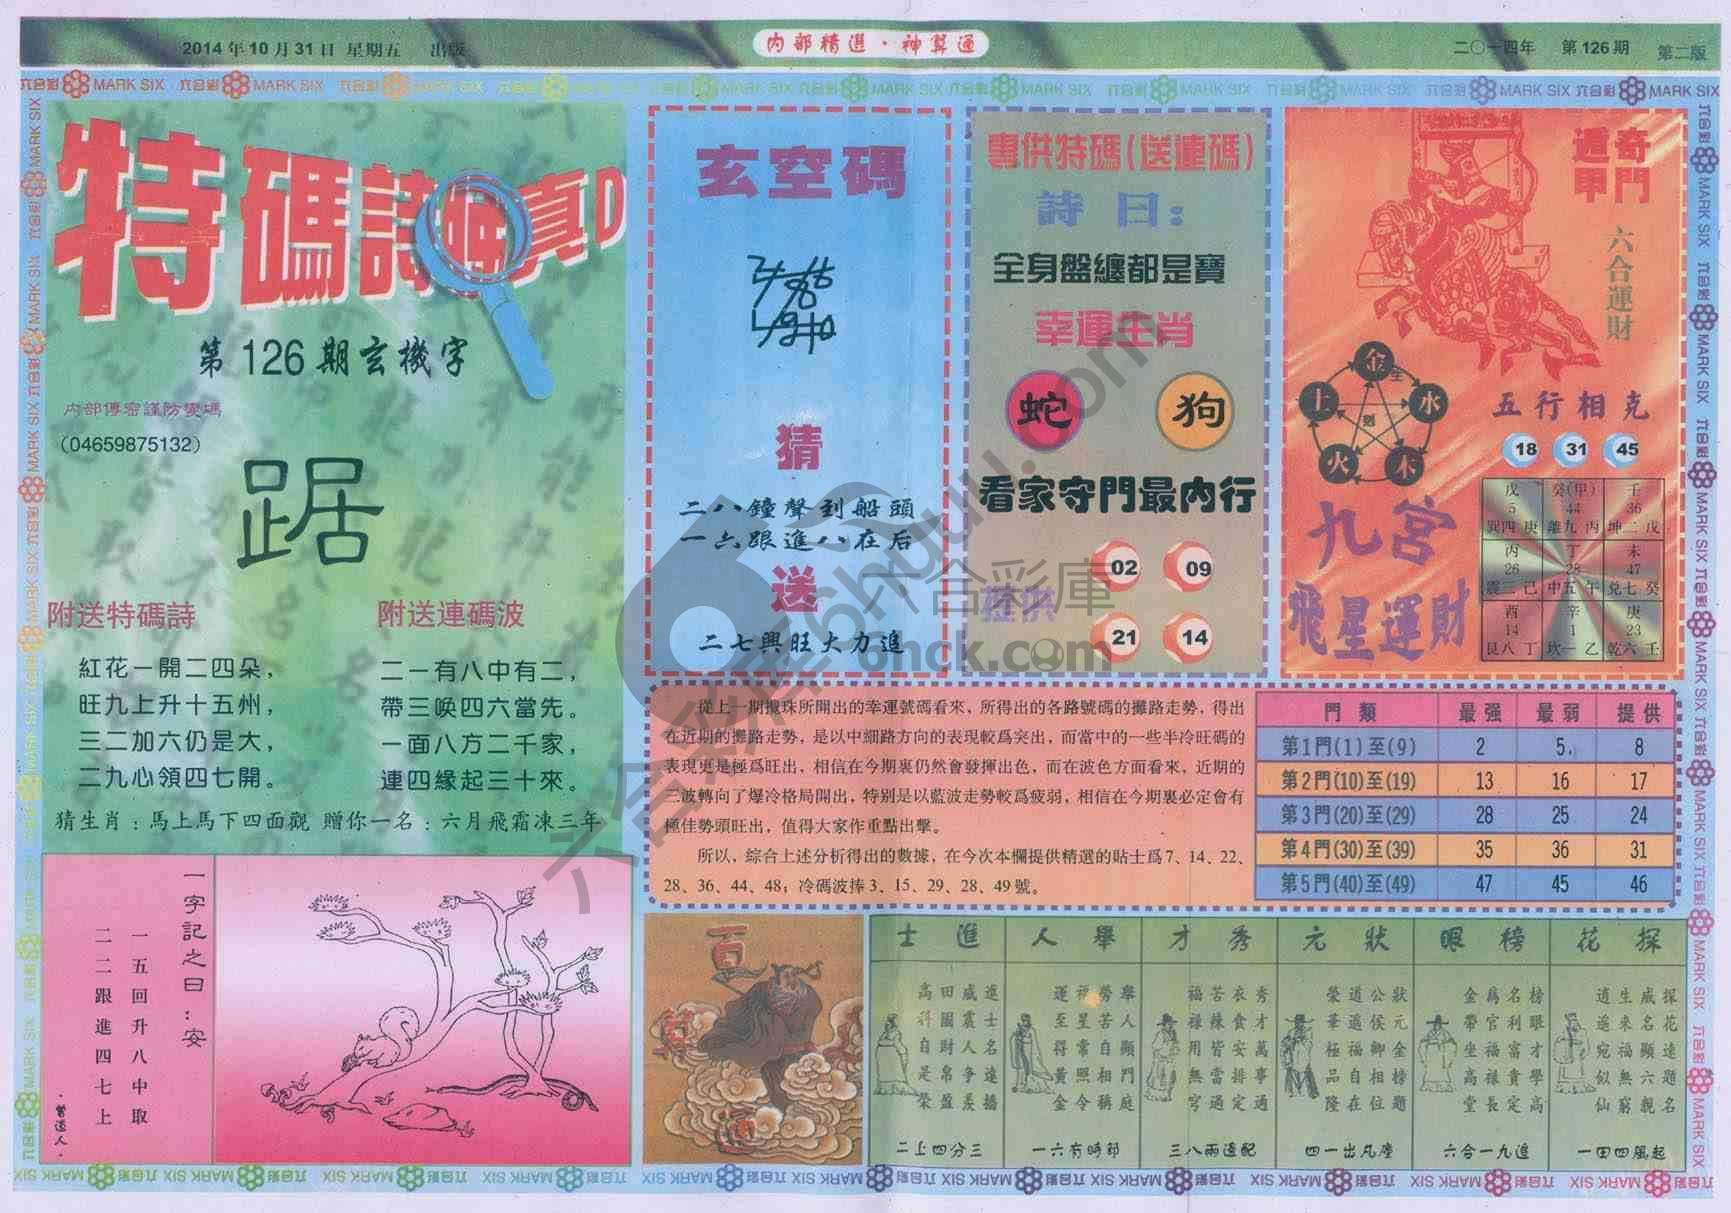 2014年10月31日 星期五 出版
内部精選·神算通
二〇一四年 第126期 第二版
六合彩 MARK SIX
特碼詩解真D
第126期玄機字
内部傳密謹防變碼
(04659875132)
踞
附送特碼詩
紅花一開二四朵，
旺九上升十五州，
三二加六仍是大，
二九心領四七開。
附送連碼波
二一有八中有二，
帶三唤四六當先。
一面八方二千家，
連四緣起三十來。
猜生肖：馬上馬下四面觀 贈你一名：六月飛霜凍三年
一字記之曰：安
一五回升八中取
二二跟進四七上
·曾道人·
玄空碼
猜
二八鐘聲到船頭
一六跟進八在后
送
二七興旺大力追
專供特碼(送連碼)
詩曰：
全身盤纏都是寶
幸運生肖
蛇 狗
看家守門最内行
提供
02 09
21 14
奇門遁甲
六合運財
金 水 木 火 土
五行相克
18 31 45
九宮
飛星運財
戊 癸(甲) 壬
5 44 36
巽四 庚 離九 丙 坤二 戊
丙 丁 未
26 28 47
震三 己 中五 午 兌七 癸
酉 辛 庚
14 1 23
艮八 丁 坎一 乙 乾六 壬
從上一期攪珠所開出的幸運號碼看來，所得出的各路號碼的攤路走勢，得出
在近期的攤路走勢，是以中細路方向的表現較爲突出，而當中的一些半冷旺碼的
表現更是極爲旺出，相信在今期裏仍然會發揮出色，而在波色方面看來，近期的
三波轉向了爆冷格局開出，特别是以藍波走勢較爲疲弱，相信在今期裏必定會有
極佳勢頭旺出，值得大家作重點出擊。
所以，綜合上述分析得出的數據，在今次本欄提供精選的貼士爲7、14、22、
28、36、44、48；冷碼波捧3、15、29、28、49號。
門類 最强 最弱 提供
第1門(1)至(9) 2 5 8
第2門(10)至(19) 13 16 17
第3門(20)至(29) 28 25 24
第4門(30)至(39) 35 36 31
第5門(40)至(49) 47 45 46
百
進士
進士名遠播
威震人争羡
田園財帛盈
高科自是榮
二上四分三
舉人
舉人顯門庭
勞苦自相稱
福星常照令
運至得黃金
一六有時節
秀才
秀才萬事通
衣食安排定
苦辣皆當過
福禄用無窮
三八兩邊配
狀元
狀元金榜題
公侯卿相位
道遇福自在
榮華極品隆
四一出凡塵
榜眼
榜眼才學高
名利富貴定
爲官福禄長
金帶坐高堂
六合一九追
探花
探花遠題名
威名顯六親
生來福無窮
逍遥宛似仙
一田四風起
六合彩庫
六合彩库6hguu.com
6hck.com